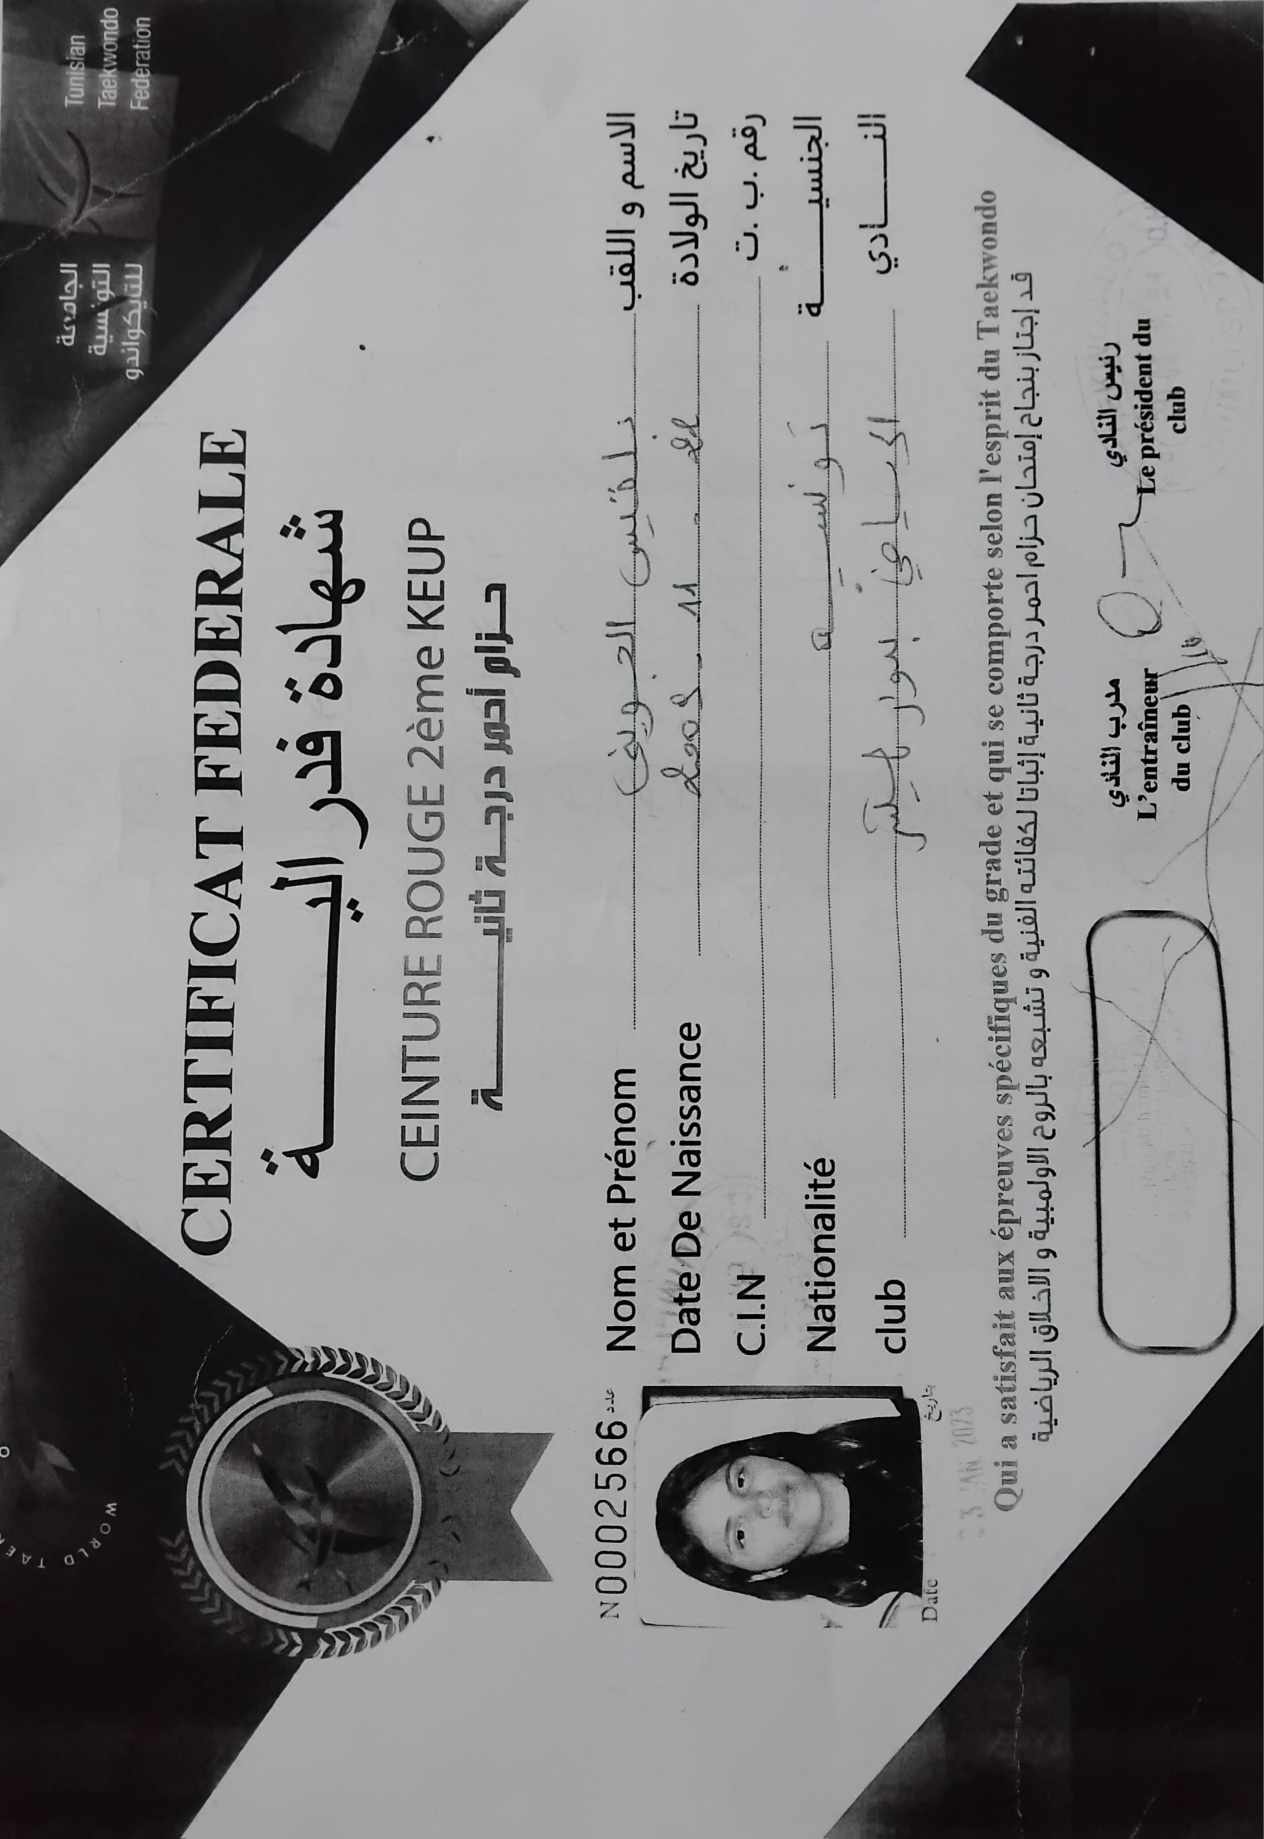 Tunisian
Taekwondo
Federation
الجامعة
التونسية
للتايكواندو
WORLD TAEK
CERTIFICAT FEDERALE
شهادة فدراليـــــــة
CEINTURE ROUGE 2ème KEUP
حزام أحمر درجة ثانيـــــــة
N0002566 عدد
Nom et Prénom بلقيس الجويني الاسم و اللقب
Date De Naissance 22 - 11 - 2008 تاريخ الولادة
C.I.N رقم .ب .ت
Nationalité تونسية الجنسيـــــة
club الرياضي النـــــادي
Date بتاريخ
JAN 2023
Qui a satisfait aux épreuves spécifiques du grade et qui se comporte selon l'esprit du Taekwondo
قد إجتاز بنجاح إمتحان حزام احمر درجة ثانية إثباتا لكفائته الفنية و تشبعه بالروح الاولمبية و الاخلاق الرياضية
مدرب النادي
L'entraîneur
du club
رئيس النادي
Le président du
club